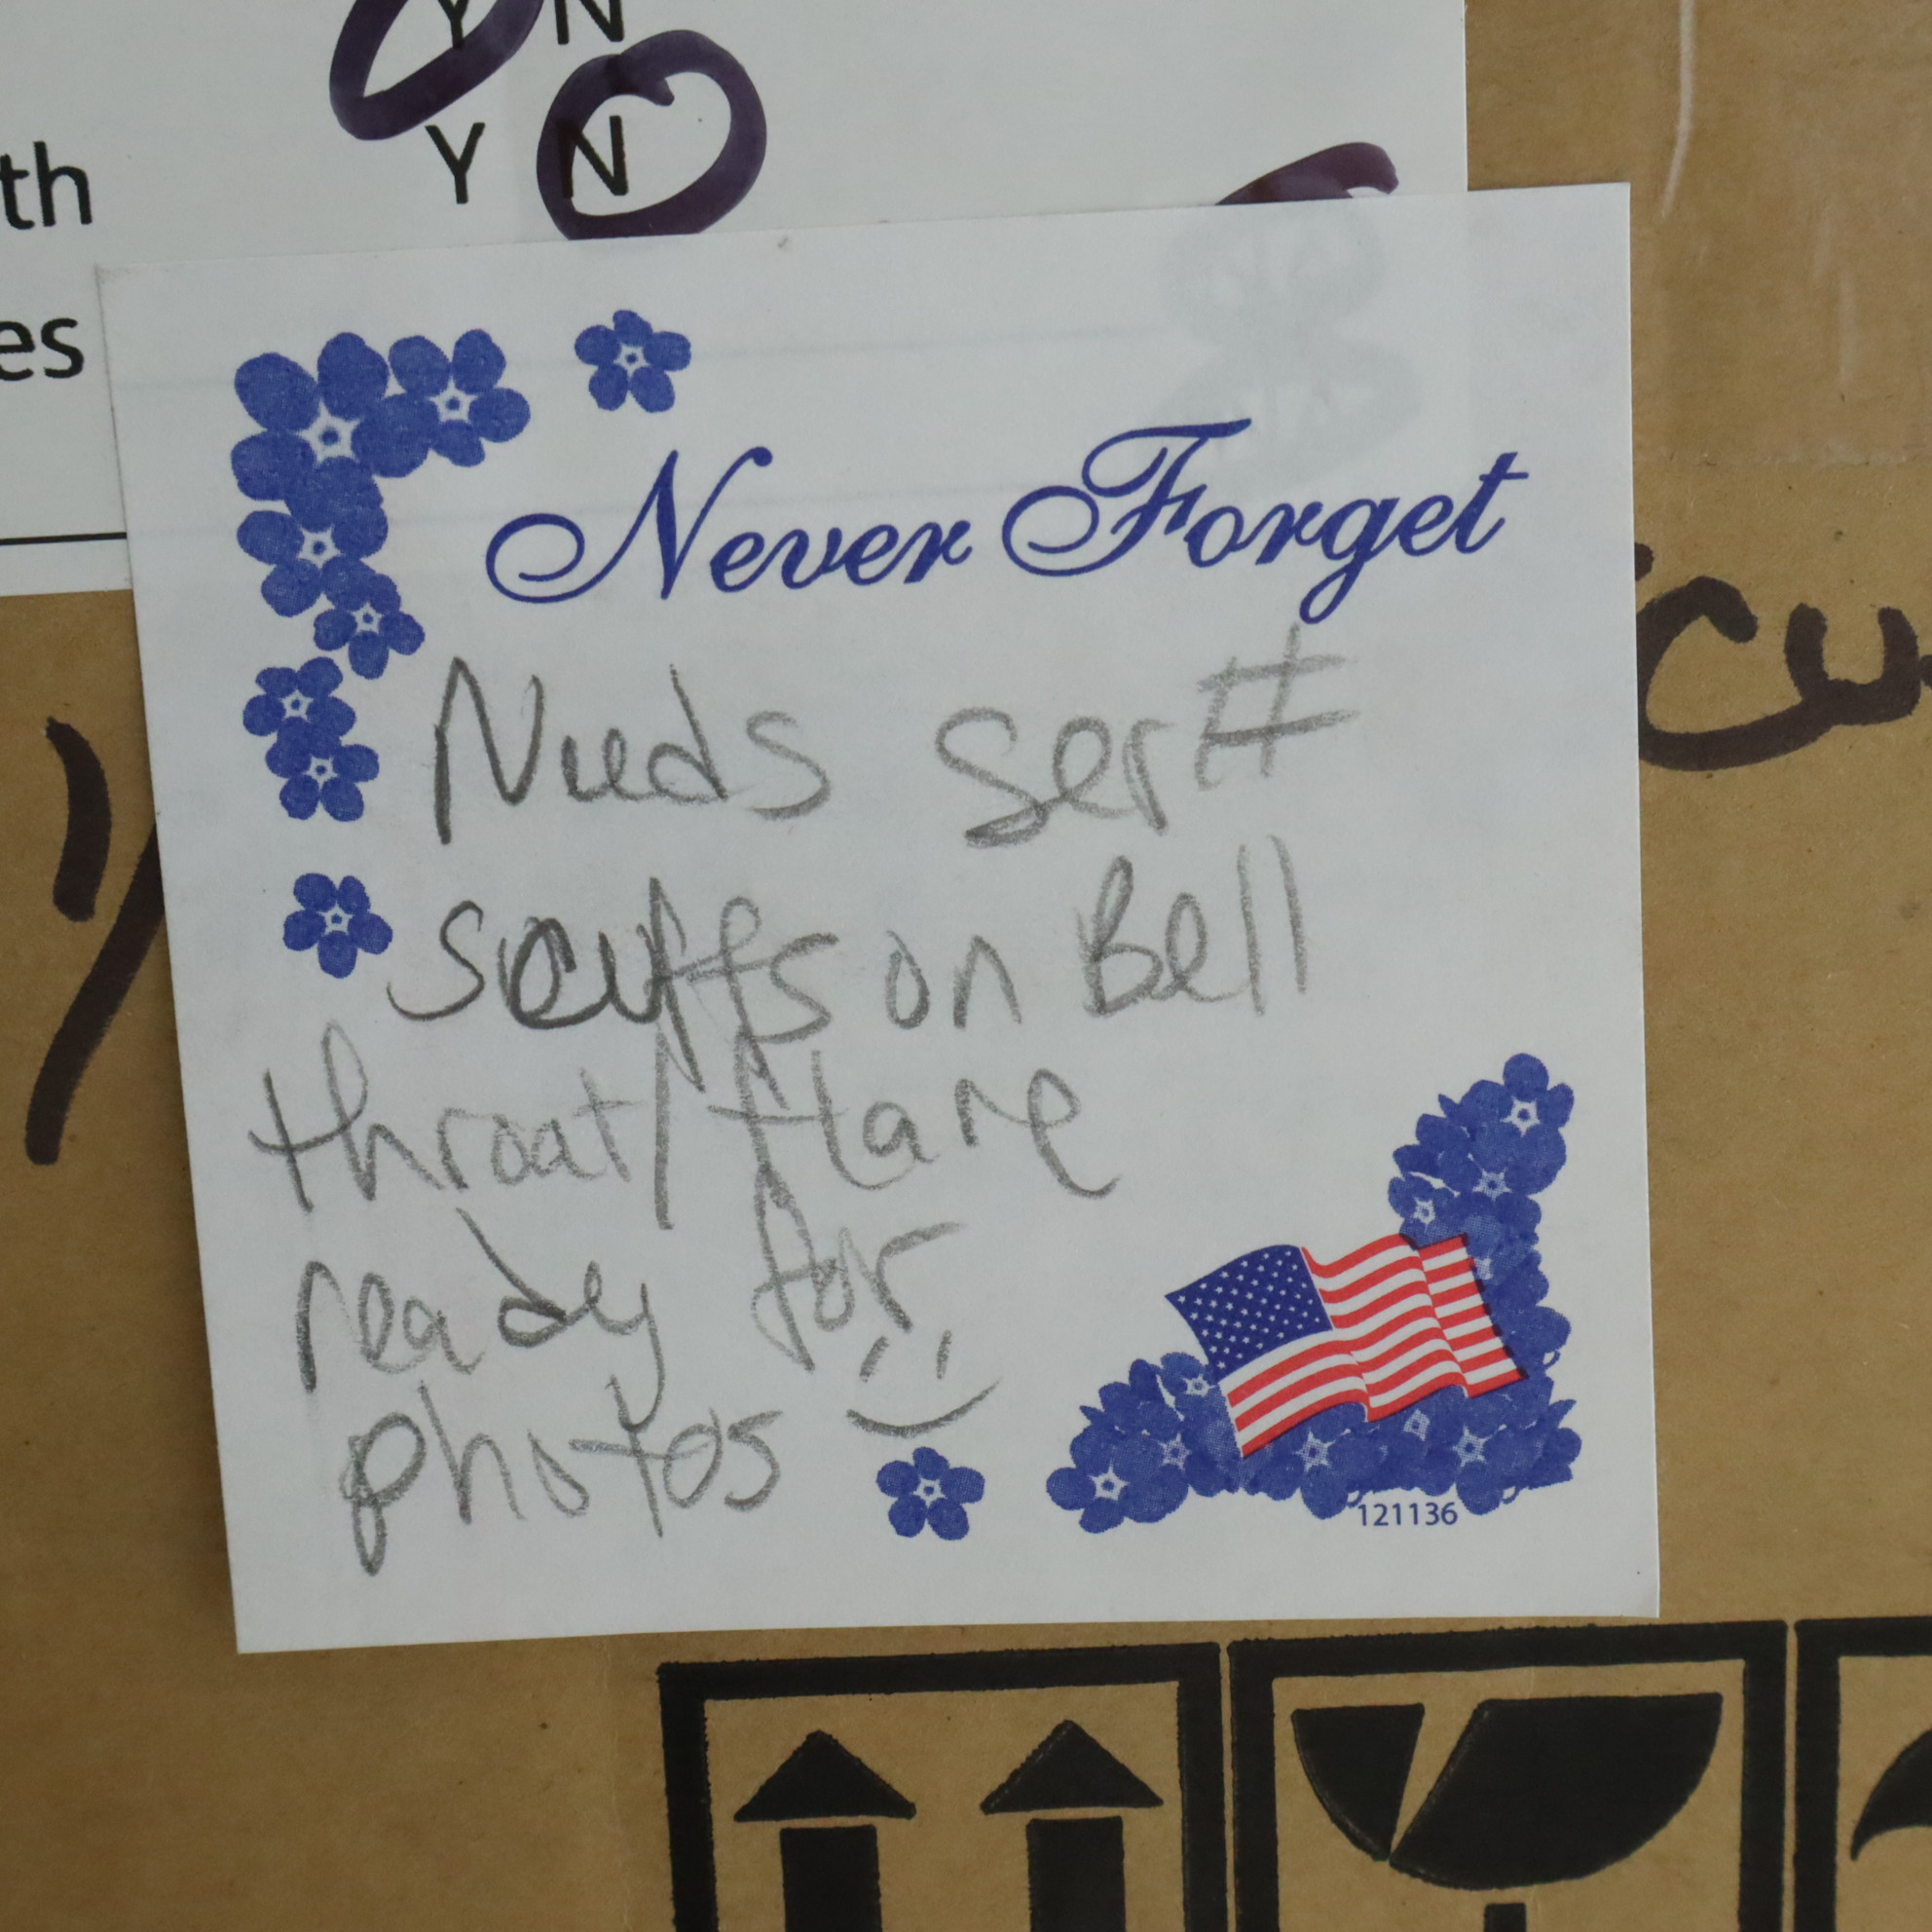 Y N
Y N
th
es
Never Forget
Needs ser#
scuffs on Bell
throat/flare
ready for
photos
121136
cu